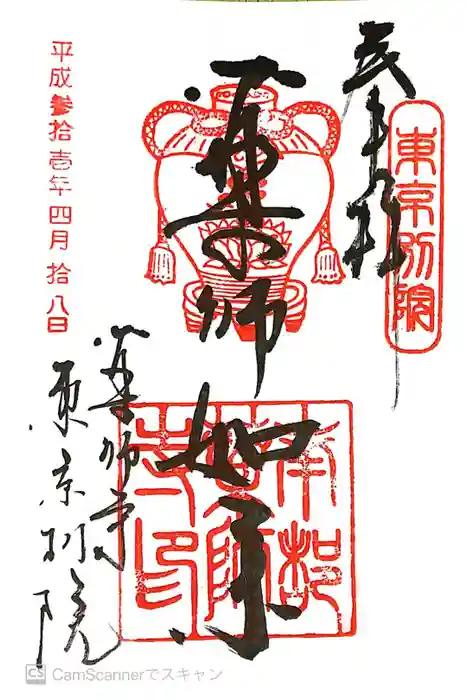 奉拝
東京別院
薬師如来
南都薬師寺印
平成参拾壱年四月拾八日
薬師寺
東京別院
CS CamScannerでスキャン